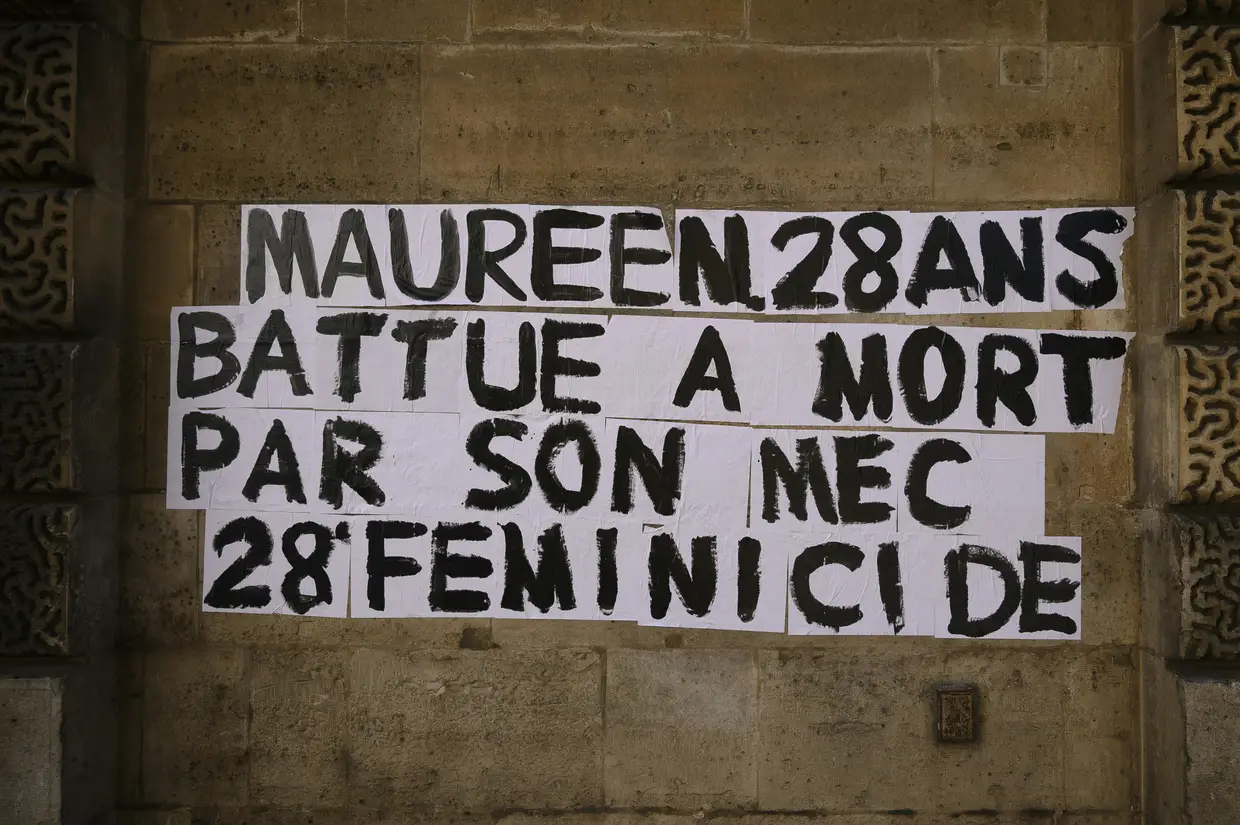 MAUREEN.28ANS
BATTUE A MORT
PAR SON MEC
28°FEMINICIDE